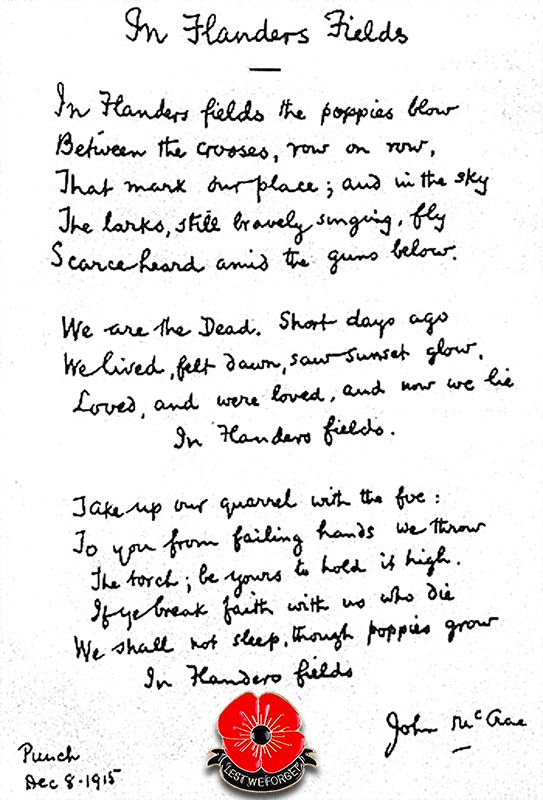 In Flanders Fields
In Flanders fields the poppies blow
Between the crosses, row on row,
That mark our place; and in the sky
The larks, still bravely singing, fly
Scarce heard amid the guns below.
We are the Dead. Short days ago
We lived, felt dawn, saw sunset glow,
Loved, and were loved, and now we lie
In Flanders fields.
Take up our quarrel with the foe:
To you from failing hands we throw
The torch; be yours to hold it high.
If ye break faith with us who die
We shall not sleep, though poppies grow
In Flanders fields
John McCrae
Punch
Dec 8·1915
LEST WE FORGET